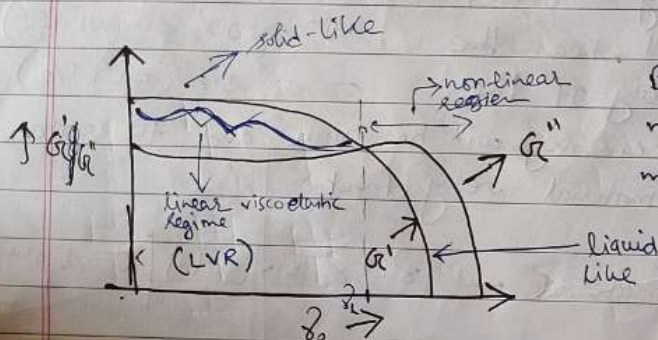 solid-like
non-linear
region
G'/G"
G"
linear viscoelastic
regime
(LVR)
G'
liquid
like
γ₀